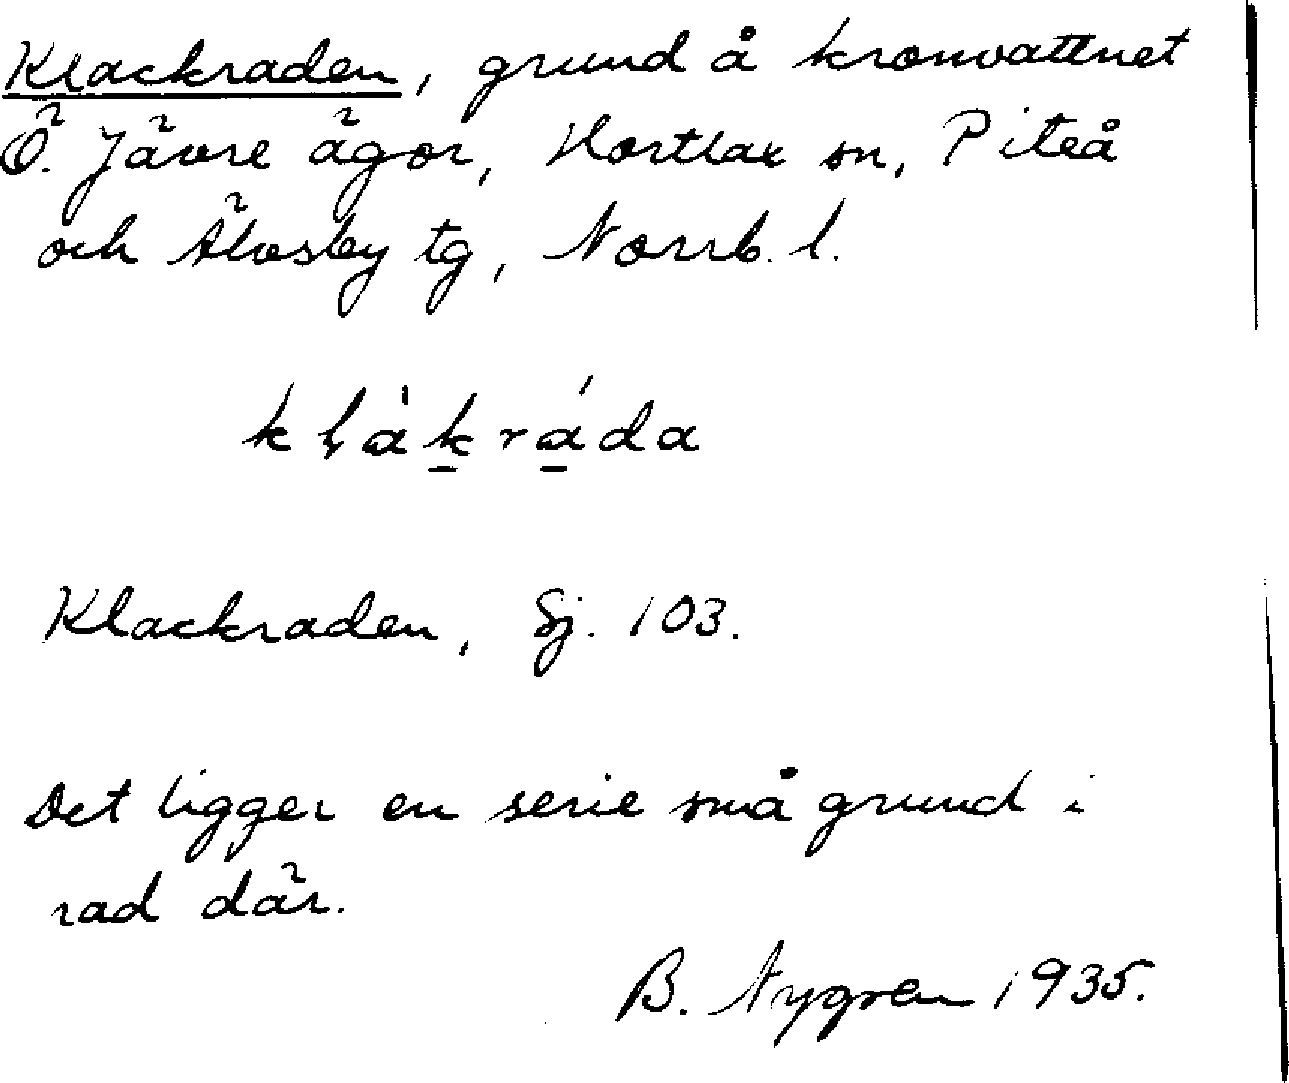 Klackraden, grund å kronvattnet
Ö. Jävre ägor, Hortlax sn, Piteå
och Älvsby tg, Norrb. l.
kḷàk̲rá̲da
Klackraden, Sj. 103.
Det ligger en serie små grund i
rad där.
B. Nygren 1935.